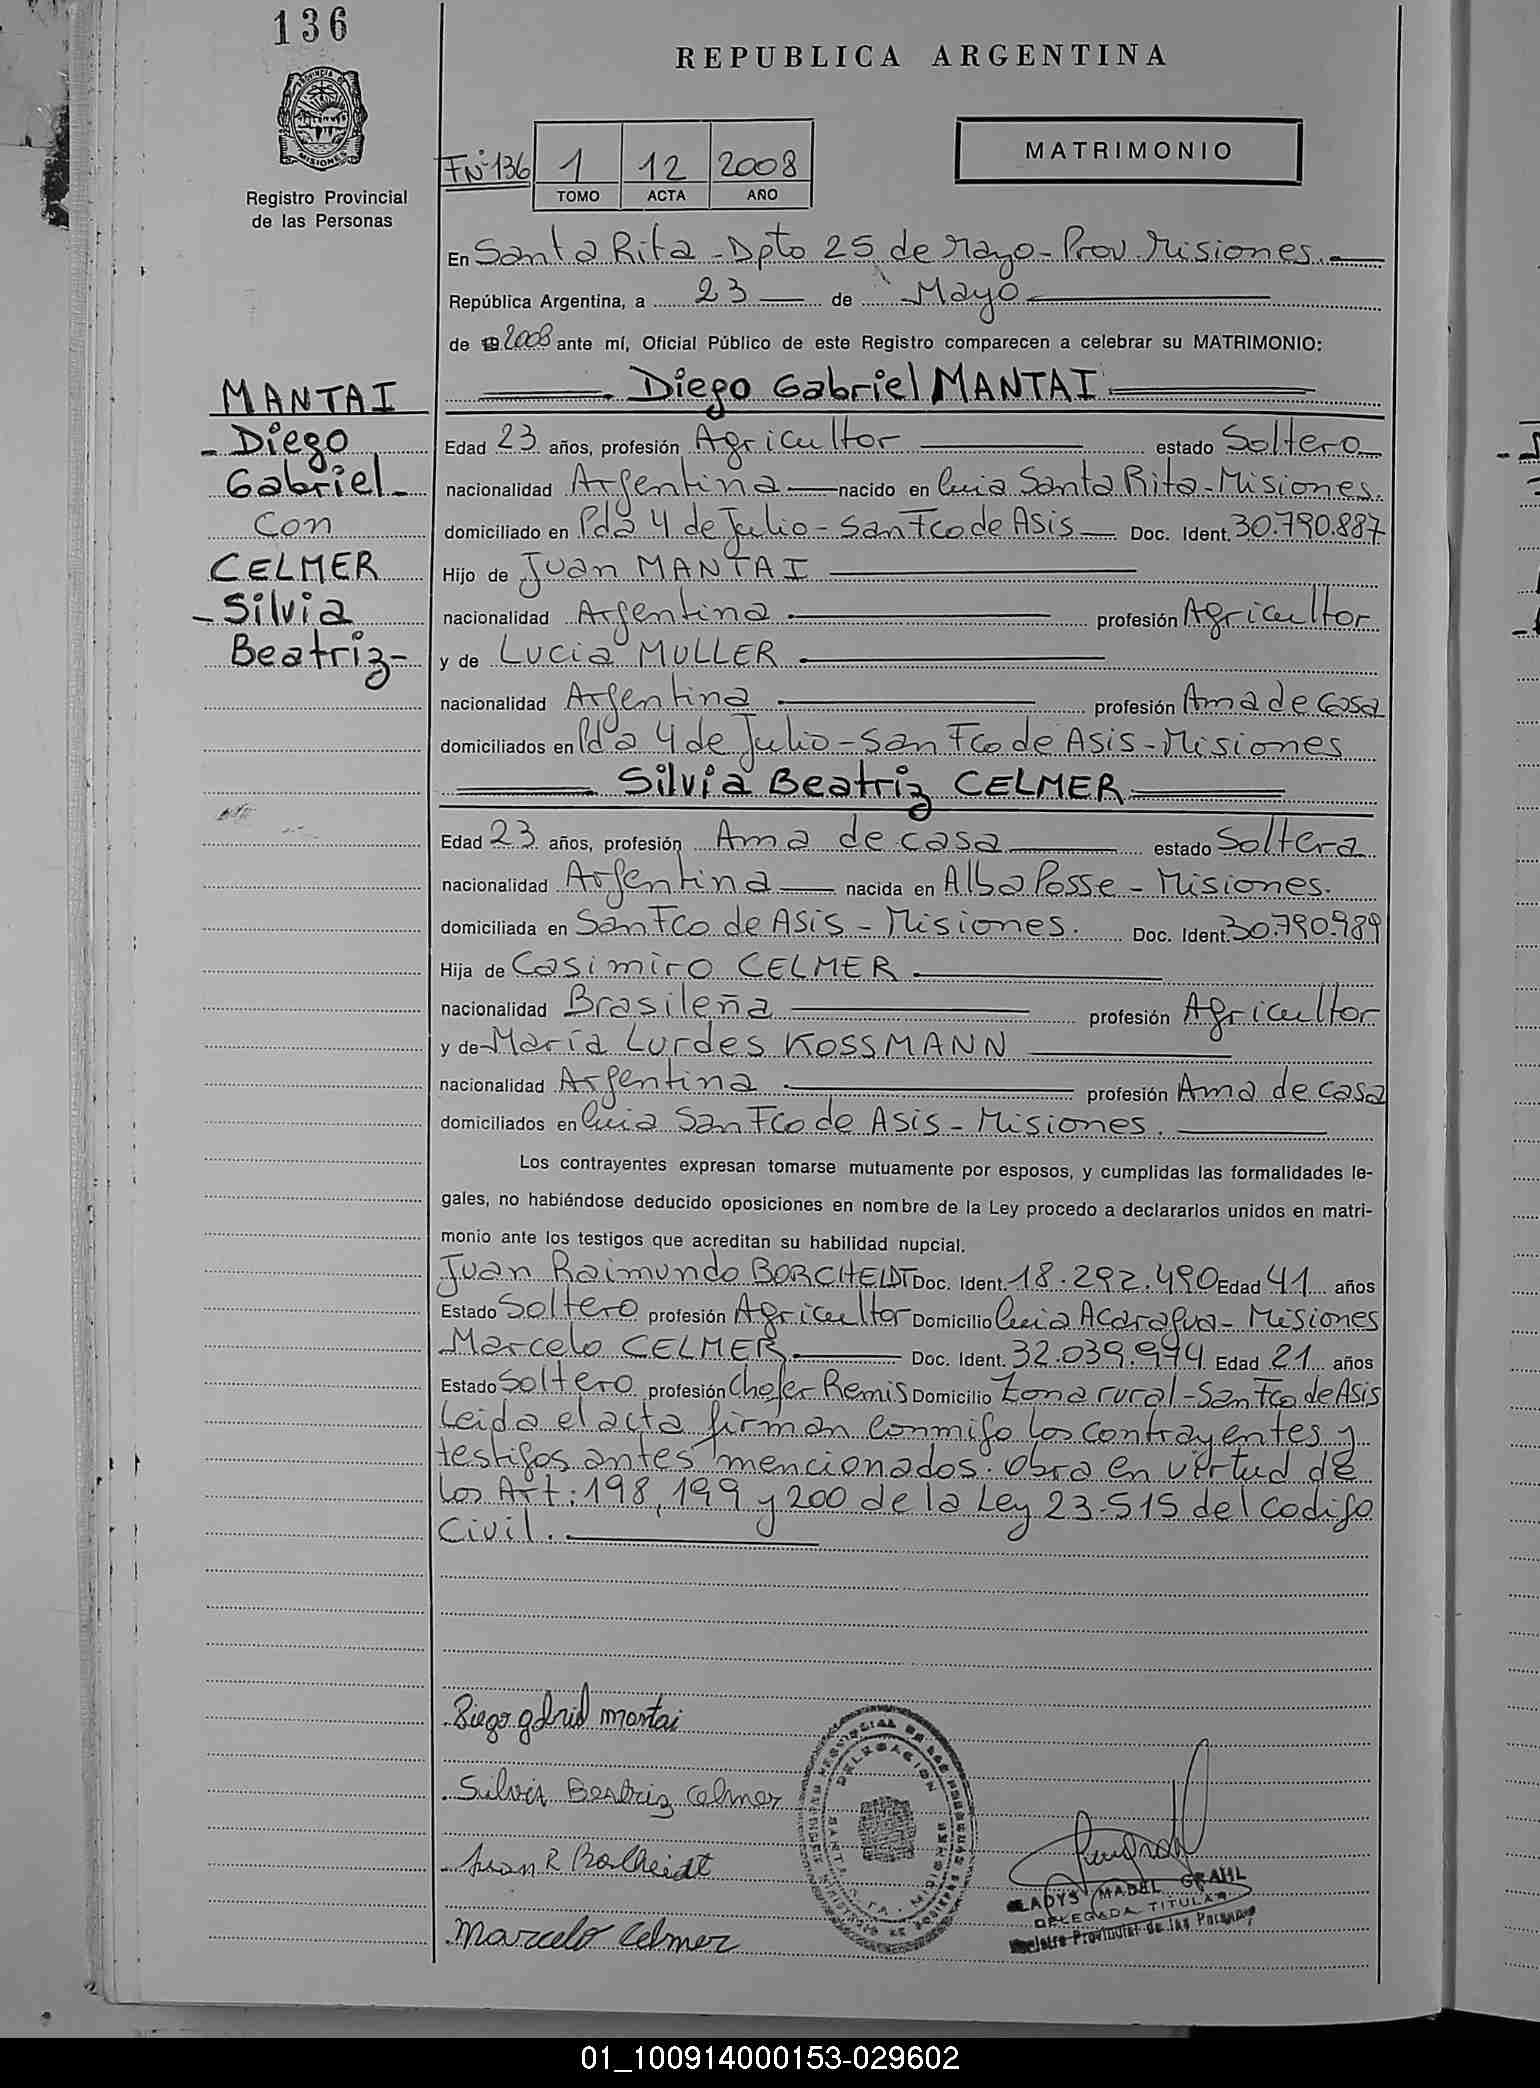 136
REPUBLICA ARGENTINA
PROVINCIA DE MISIONES
Registro Provincial
de las Personas
FNº136 1 12 2008
TOMO ACTA AÑO
MATRIMONIO
En Santa Rita - Dpto 25 de Mayo - Prov Misiones.
República Argentina, a 23 de Mayo
de 2008 ante mí, Oficial Público de este Registro comparecen a celebrar su MATRIMONIO:
MANTAI
Diego
Gabriel
Con
CELMER
Silvia
Beatriz
Diego Gabriel MANTAI
Edad 23 años, profesión Agricultor estado Soltero
nacionalidad Argentina nacido en Cnia Santa Rita - Misiones.
domiciliado en Pda 4 de Julio - San Fco de Asis Doc. Ident. 30.790.887
Hijo de Juan MANTAI
nacionalidad Argentina profesión Agricultor
y de Lucia MULLER
nacionalidad Argentina profesión Ama de casa
domiciliados en Pda 4 de Julio - San Fco de Asis - Misiones
Silvia Beatriz CELMER
Edad 23 años, profesión Ama de casa estado Soltera
nacionalidad Argentina nacida en Alba Posse - Misiones.
domiciliada en San Fco de Asis - Misiones. Doc. Ident. 30.790.989
Hija de Casimiro CELMER
nacionalidad Brasileña profesión Agricultor
y de María Lurdes KOSSMANN
nacionalidad Argentina profesión Ama de casa
domiciliados en Cnia San Fco de Asis - Misiones.
Los contrayentes expresan tomarse mutuamente por esposos, y cumplidas las formalidades le-
gales, no habiéndose deducido oposiciones en nombre de la Ley procedo a declararlos unidos en matri-
monio ante los testigos que acreditan su habilidad nupcial.
Juan Raimundo BORCHEIDT Doc. Ident. 18.292.490 Edad 41 años
Estado Soltero profesión Agricultor Domicilio Cnia Acaragua - Misiones
Marcelo CELMER Doc. Ident. 32.039.994 Edad 21 años
Estado Soltero profesión Chofer Remis Domicilio Zona rural - San Fco de Asis
Leida el acta firman conmigo los contrayentes y
testigos antes mencionados. Obra en virtud de
los Art: 198, 199 y 200 de la Ley 23.515 del Codigo
Civil.
Diego gabriel mantai
Silvia Beatriz Celmer
Juan R Borcheidt
Marcelo Celmer
DELEGACION
GLADYS MABEL GRAHL
DELEGADA TITULAR
Registro Provincial de las Personas
01_100914000153-029602